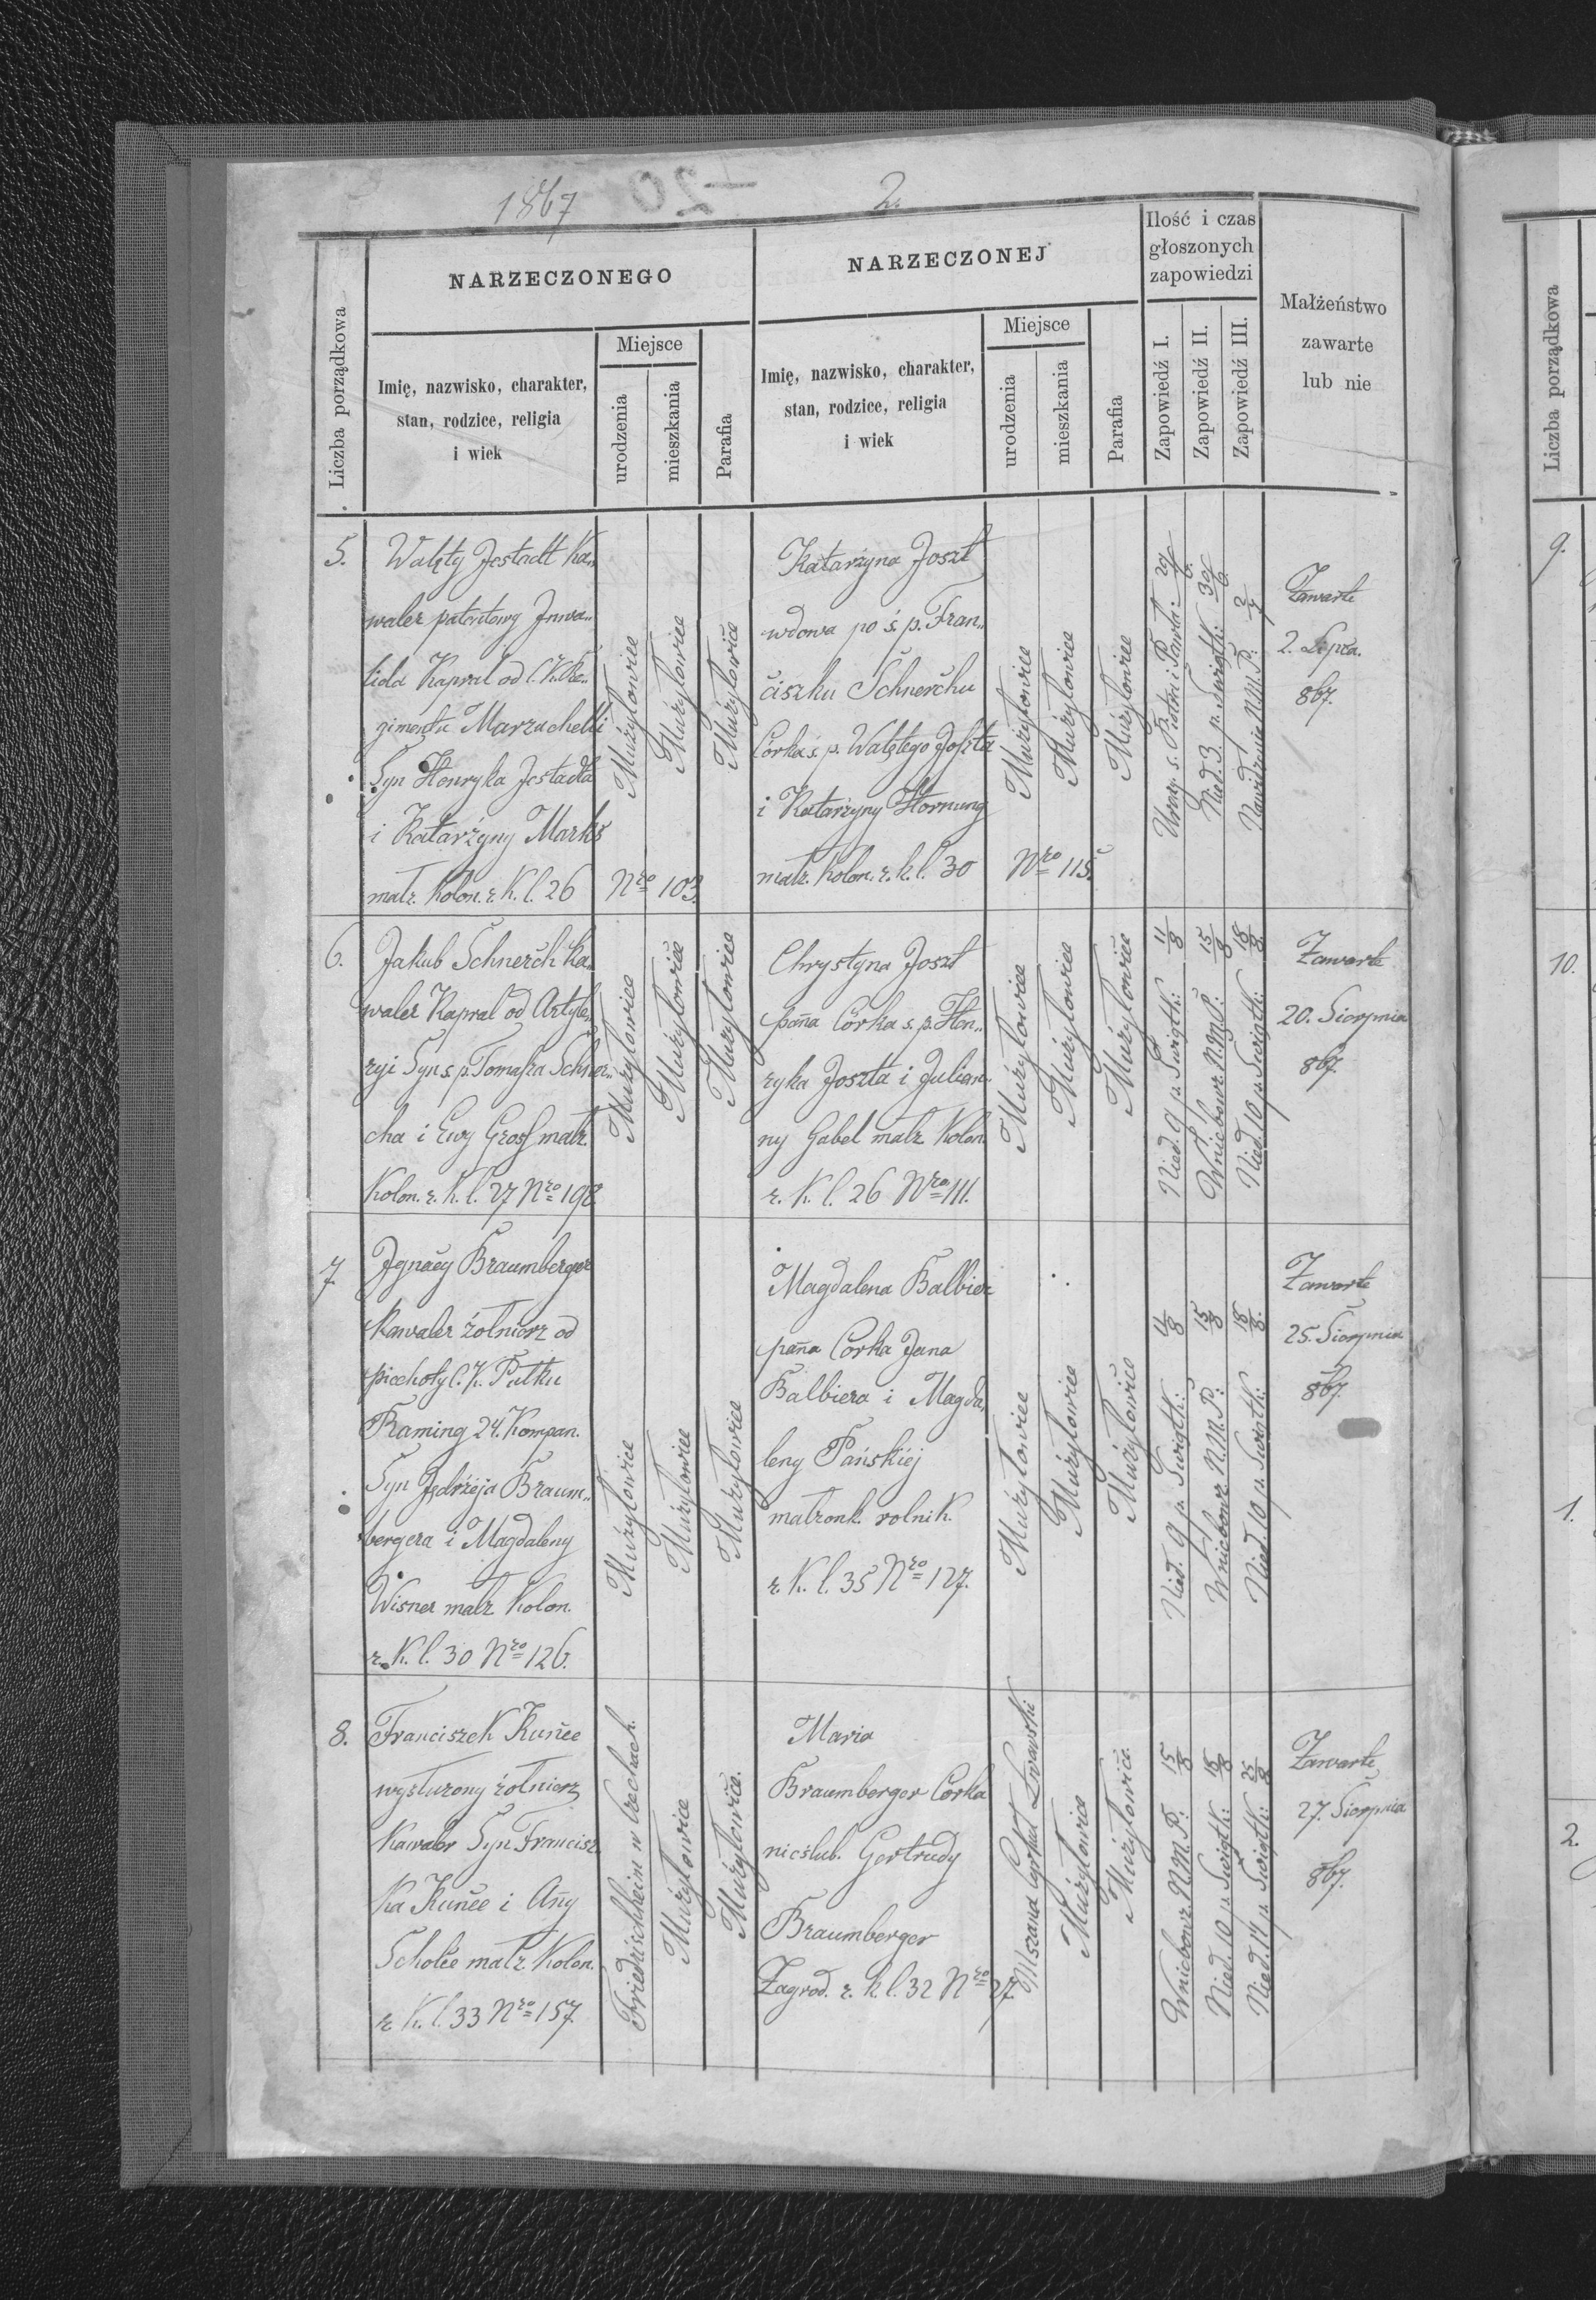 1867
20
2.
Liczba porządkowa
NARZECZONEGO
Imię, nazwisko, charakter,
stan, rodzice, religia
i wiek
Miejsce
urodzenia
mieszkania
Parafia
NARZECZONEJ
Imię, nazwisko, charakter,
stan, rodzice, religia
i wiek
Miejsce
urodzenia
mieszkania
Parafia
Ilość i czas
głoszonych
zapowiedzi
Zapowiedź I.
Zapowiedź II.
Zapowiedź III.
Małżeństwo
zawarte
lub nie
5.
Walęty Jestadt Ka„
waler patentowy Inwa„
lida Kapral od C. K. Re„
gimentu
Syn Henryka Jestadta
i Katarżyny Marks
małż. Kolon. r. K. l. 26 Nro 103.
Mużyłowice
Mużyłowice
Mużyłowice
Katarżyna Joszt
wdowa po ś. p. Fran„
ciszku Schnerchu
Córka ś. p. Walętego Joszta
i Katarżyny Hornung
małż. Kolon. r. k. l. 30 Nro 115.
Mużyłowice
Mużyłowice
Mużyłowice
Urocz. s. Piotra i Pawła: 29/6.
Nied. 3 p. Świątk: 30/6.
Nawidzenie N.M.P. 2/7
Zawarte
2. Lipca.
867.
6.
Jakub Schnerch Ka„
waler Kapral od Artyle„
ryi Syn s. p. Tomasza Schner„
cha i Ewy Gross małż.
Kolon. r. K. l. 27 Nro 198.
Mużyłowice
Mużyłowice
Mużyłowice
Chrystyna Joszt
pan̄a Córka s. p. Hen„
ryka Joszta i Julian„
ny Gabel małż Kolon.
r. K. l. 26 Nro 111.
Mużyłowice
Mużyłowice
Mużyłowice
Nied. 9 p. Świątk: 11/8
Wniebowz. N.M.P.: 15/8
Nied. 10 p. Świątk: 18/8.
Zawarte
20. Sierpnia
867.
7.
Ignacy Braumberger
Kawaler żołnierz od
piechoty C. K. Pułku
Raming 24. Kompan.
Syn Jędrżeja Braum„
bergera i Magdaleny
Wisner małż Kolon.
r. K. l. 30 Nro 126.
Mużyłowice
Mużyłowice
Mużyłowice
Magdalena Balbier
pan̄a Córka Jana
Balbiera i Magda„
leny Pańskiéj
małżonk. rolnik.
r. K. l. 35 Nro 127.
Mużyłowice
Mużyłowice
Mużyłowice
Nied. 9 p. Świątk: 11/8
Wniebowz N.M.P.: 15/8
Nied. 10 p. Świątk: 18/8.
Zawarte
25. Sierpnia
867.
8.
Franciszek Kunce
wysłużony żołnierz
Kawaler Syn Francisz„
Ka Kunce i An̄y
Scholce małż. Kolon.
r. K. l. 33 Nro 157.
w Czechach.
Mużyłowice
Mużyłowice.
Maria
Braumberger Córka
nieślub. Gertrudy
Braumberger
Zagrod. r. k. l. 32 Nro 27.
Mszana Cyrkuł Lwowski
Mużyłowice
Mużyłowice.
Wniebowz. N.M.P.: 15/8
Nied. 10 p. Świątk: 18/8
Nied. 11 p. Świątk: 25/8
Zawarte
27. Sierpnia
867.
Liczba porządkowa
9.
10.
1.
2.